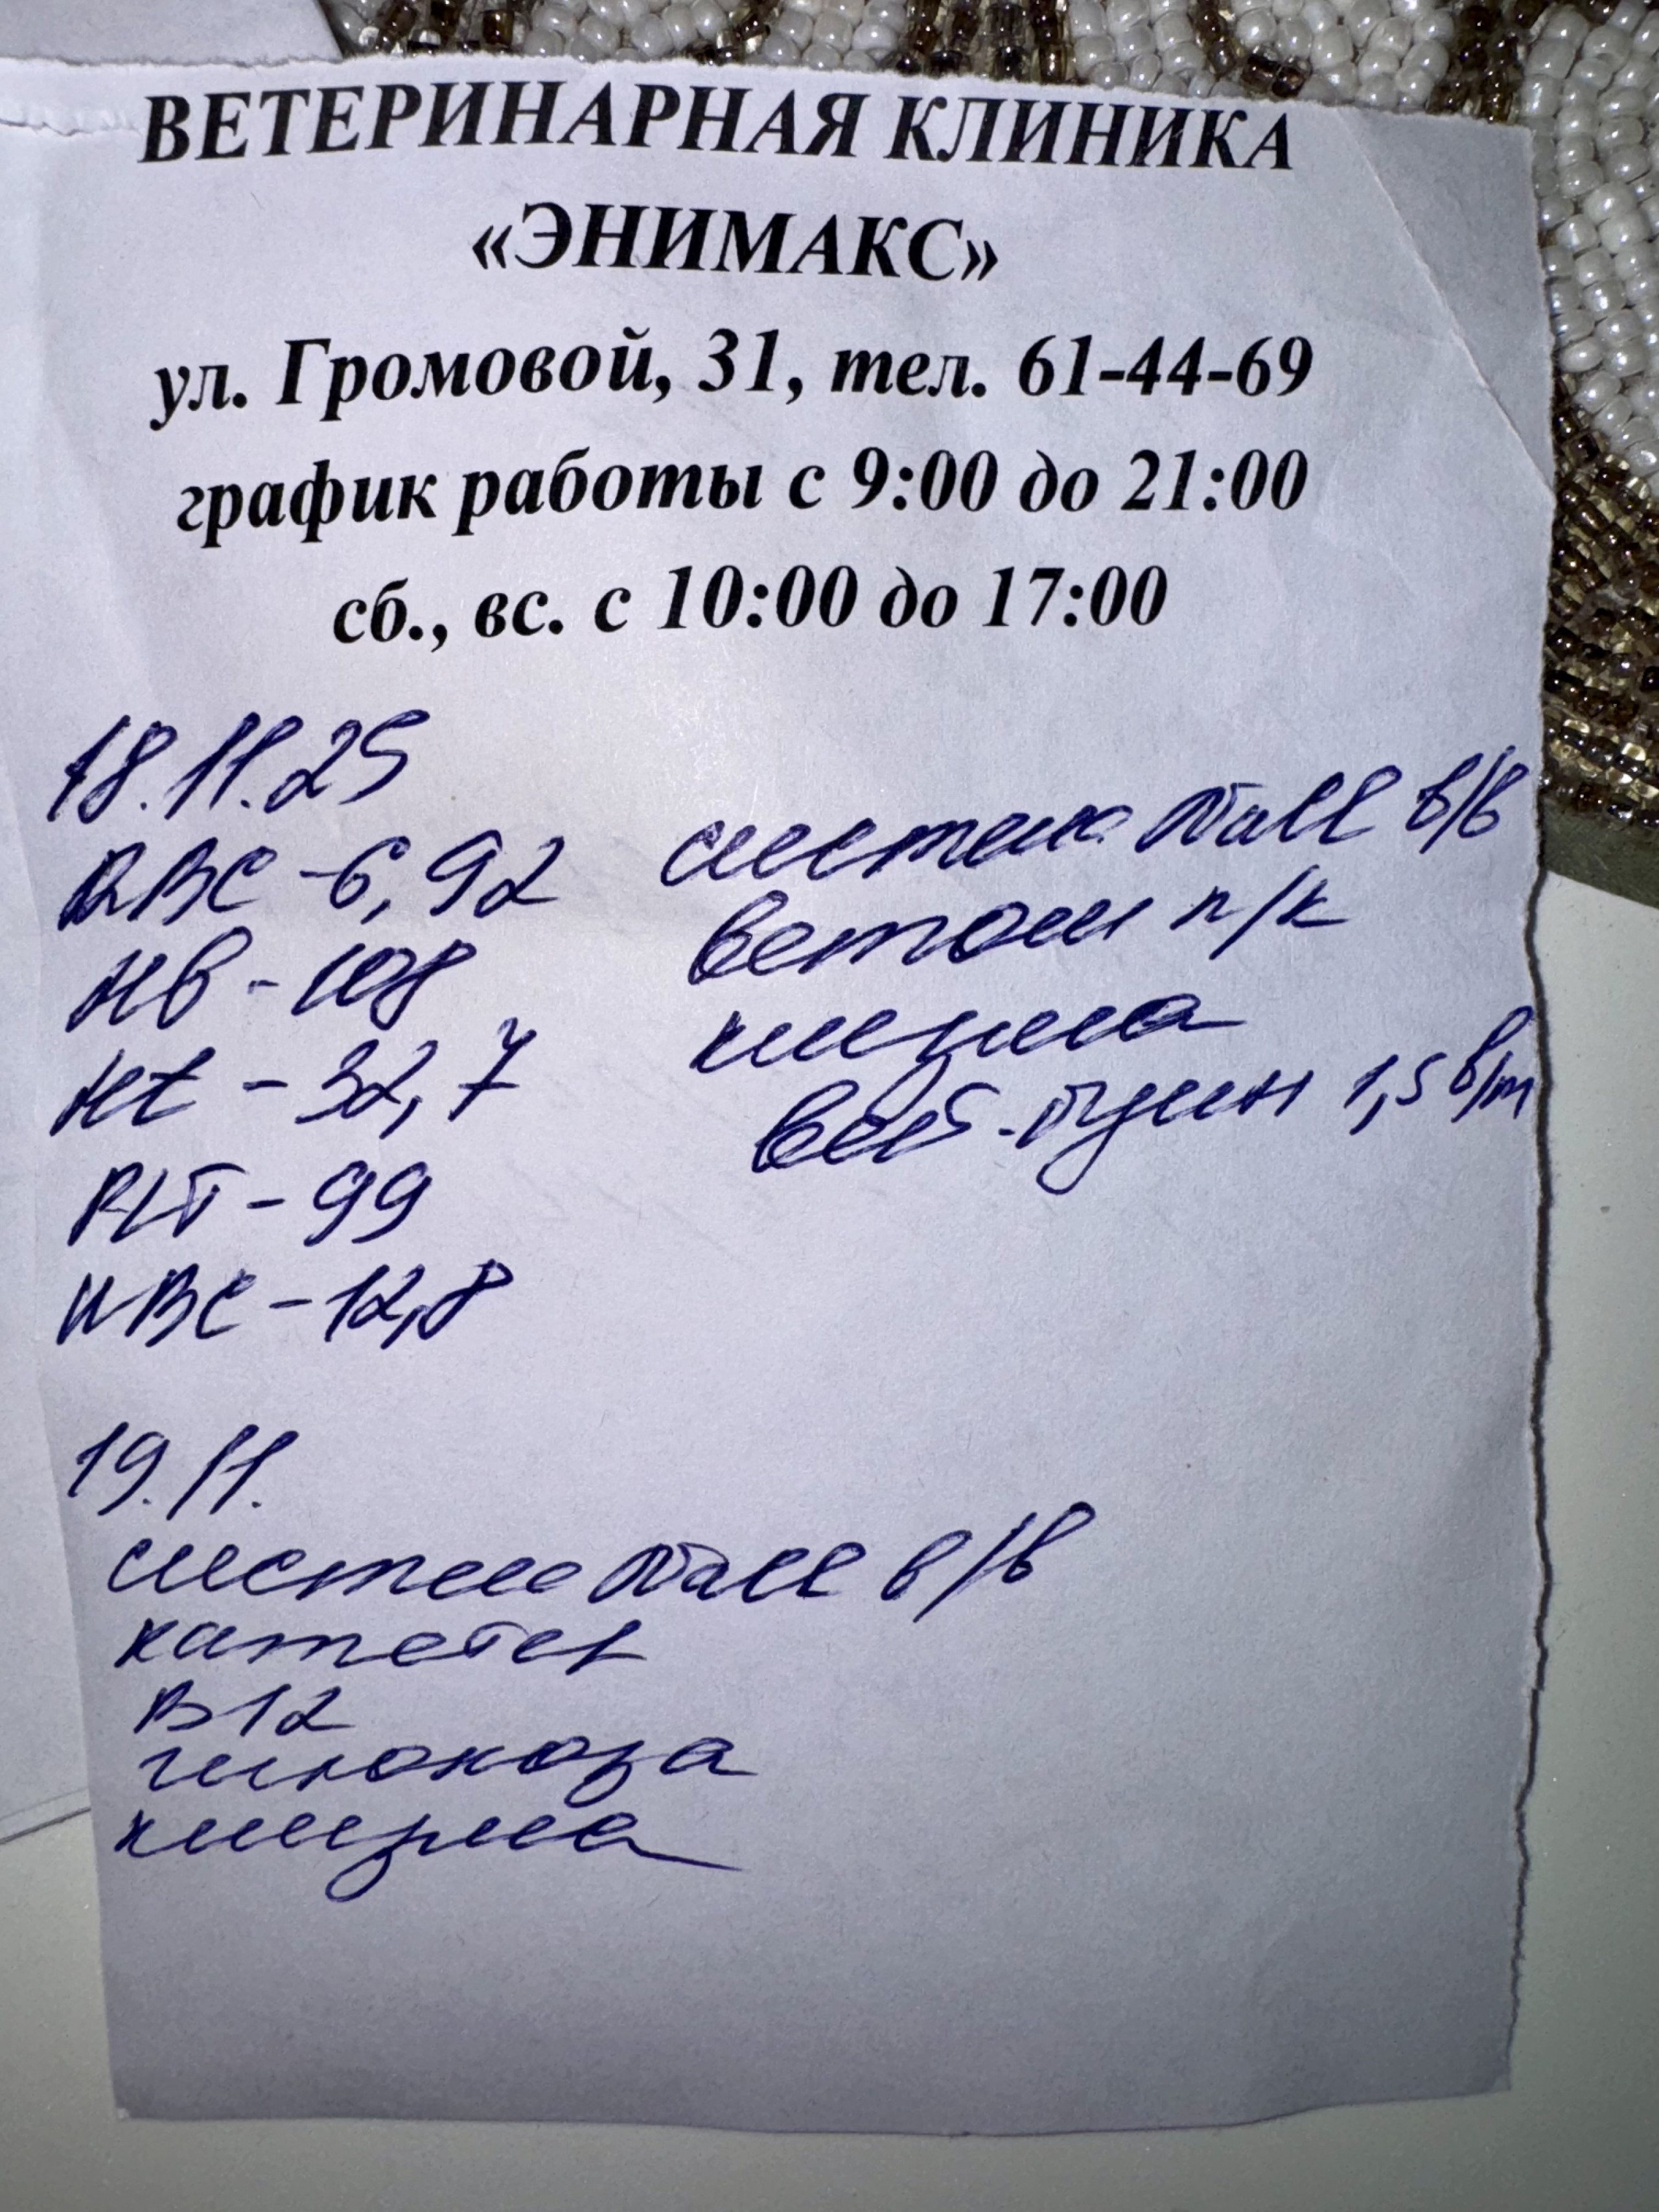 ВЕТЕРИНАРНАЯ КЛИНИКА
«ЭНИМАКС»
ул. Громовой, 31, тел. 61-44-69
график работы с 9:00 до 21:00
сб., вс. с 10:00 до 17:00
18.11.25
RBC - 6,92
Hb - 108
Ht - 32,7
PLT - 99
WBC - 12,8
система NaCl в/в
ветом п/к
клизма
1,5 в/м
19.11.
система NaCl в/в
катетер
B12
глюкоза
клизма